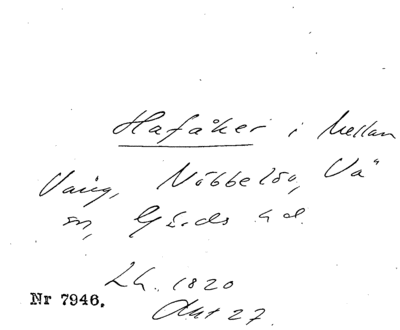 Hafåker i Mellan
Vång, Nöbbelöv, Vä
sn, Gärds hd.
Lh. 1820
Akt 27.
Nr 7946.